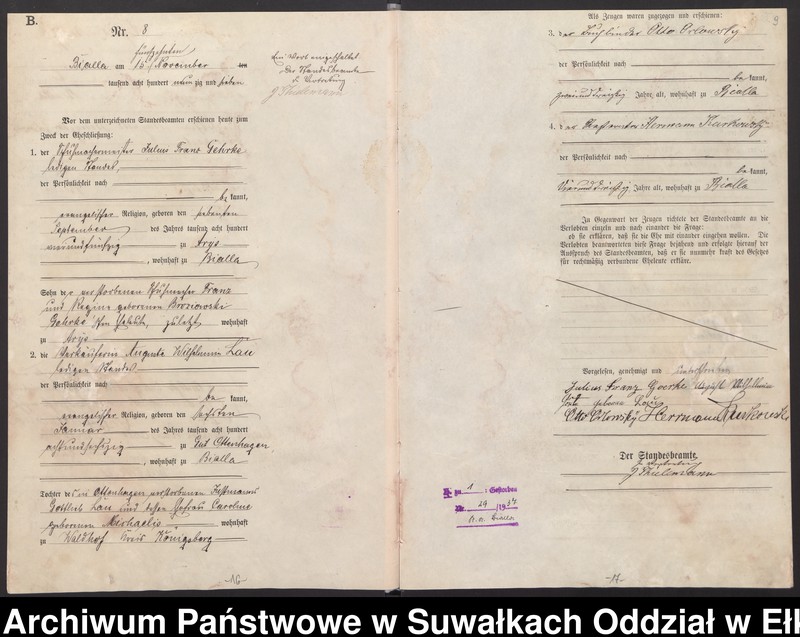 B.
Nr. 8
fünfzehnten
Bialla am 15 November
tausend acht hundert neunzig und sieben
Ein Wort eingeschaltet.
Der Standesbeamte
J. Vertretung
Vor dem unterzeichneten Standesbeamten erschienen heute zum
Zweck der Eheschließung:
1. der Schuhmachermeister Julius Franz Gehrke
ledigen Standes,
der Persönlichkeit nach
be kannt,
evangelischer Religion, geboren den siebenten
September des Jahres tausend acht hundert
vierundfünfzig zu Arys
, wohnhaft zu Bialla
Sohn der verstorbenen Schuhmacher Franz
und Regine geborenen Bronowski
Gehrke'schen Eheleute, zuletzt wohnhaft
zu Arys
2. die Verkäuferin Auguste Wilhelmine Lau
ledigen Standes
der Persönlichkeit nach
be kannt,
evangelischer Religion, geboren den sechsten
Januar des Jahres tausend acht hundert
achtundsechzig zu Gut Ottenhagen
, wohnhaft zu Bialla
Tochter des in Ottenhagen verstorbenen Instmanns
Gottlieb Lau und dessen Ehefrau Caroline
geborenen Michaelis wohnhaft
zu Waldhof Kreis Königsberg
-16-
9
Als Zeugen waren zugezogen und erschienen:
3. der Tuchbinder Otto Orlowsky
der Persönlichkeit nach
be kannt,
zweiunddreißig Jahre alt, wohnhaft zu Bialla
4. der Hermann
der Persönlichkeit nach
be kannt,
vierunddreißig Jahre alt, wohnhaft zu Bialla
In Gegenwart der Zeugen richtete der Standesbeamte an die
Verlobten einzeln und nach einander die Frage:
ob sie erklären, daß sie die Ehe mit einander eingehen wollen. Die
Verlobten beantworteten diese Frage bejahend und erfolgte hierauf der
Ausspruch des Standesbeamten, daß er sie nunmehr kraft des Gesetzes
für rechtmäßig verbundene Eheleute erkläre.
Vorgelesen, genehmigt und unterschrieben
Julius Franz Goerke August Wilhelmine
geborene Lau
Otto Orlowsky Herrmann
Der Standesbeamte
J. Vertretung
zu 1 : Gestorben
Nr. 29 /1937
St. A. Bialla
-17-
Archiwum Państwowe w Suwałkach Oddział w Ełk